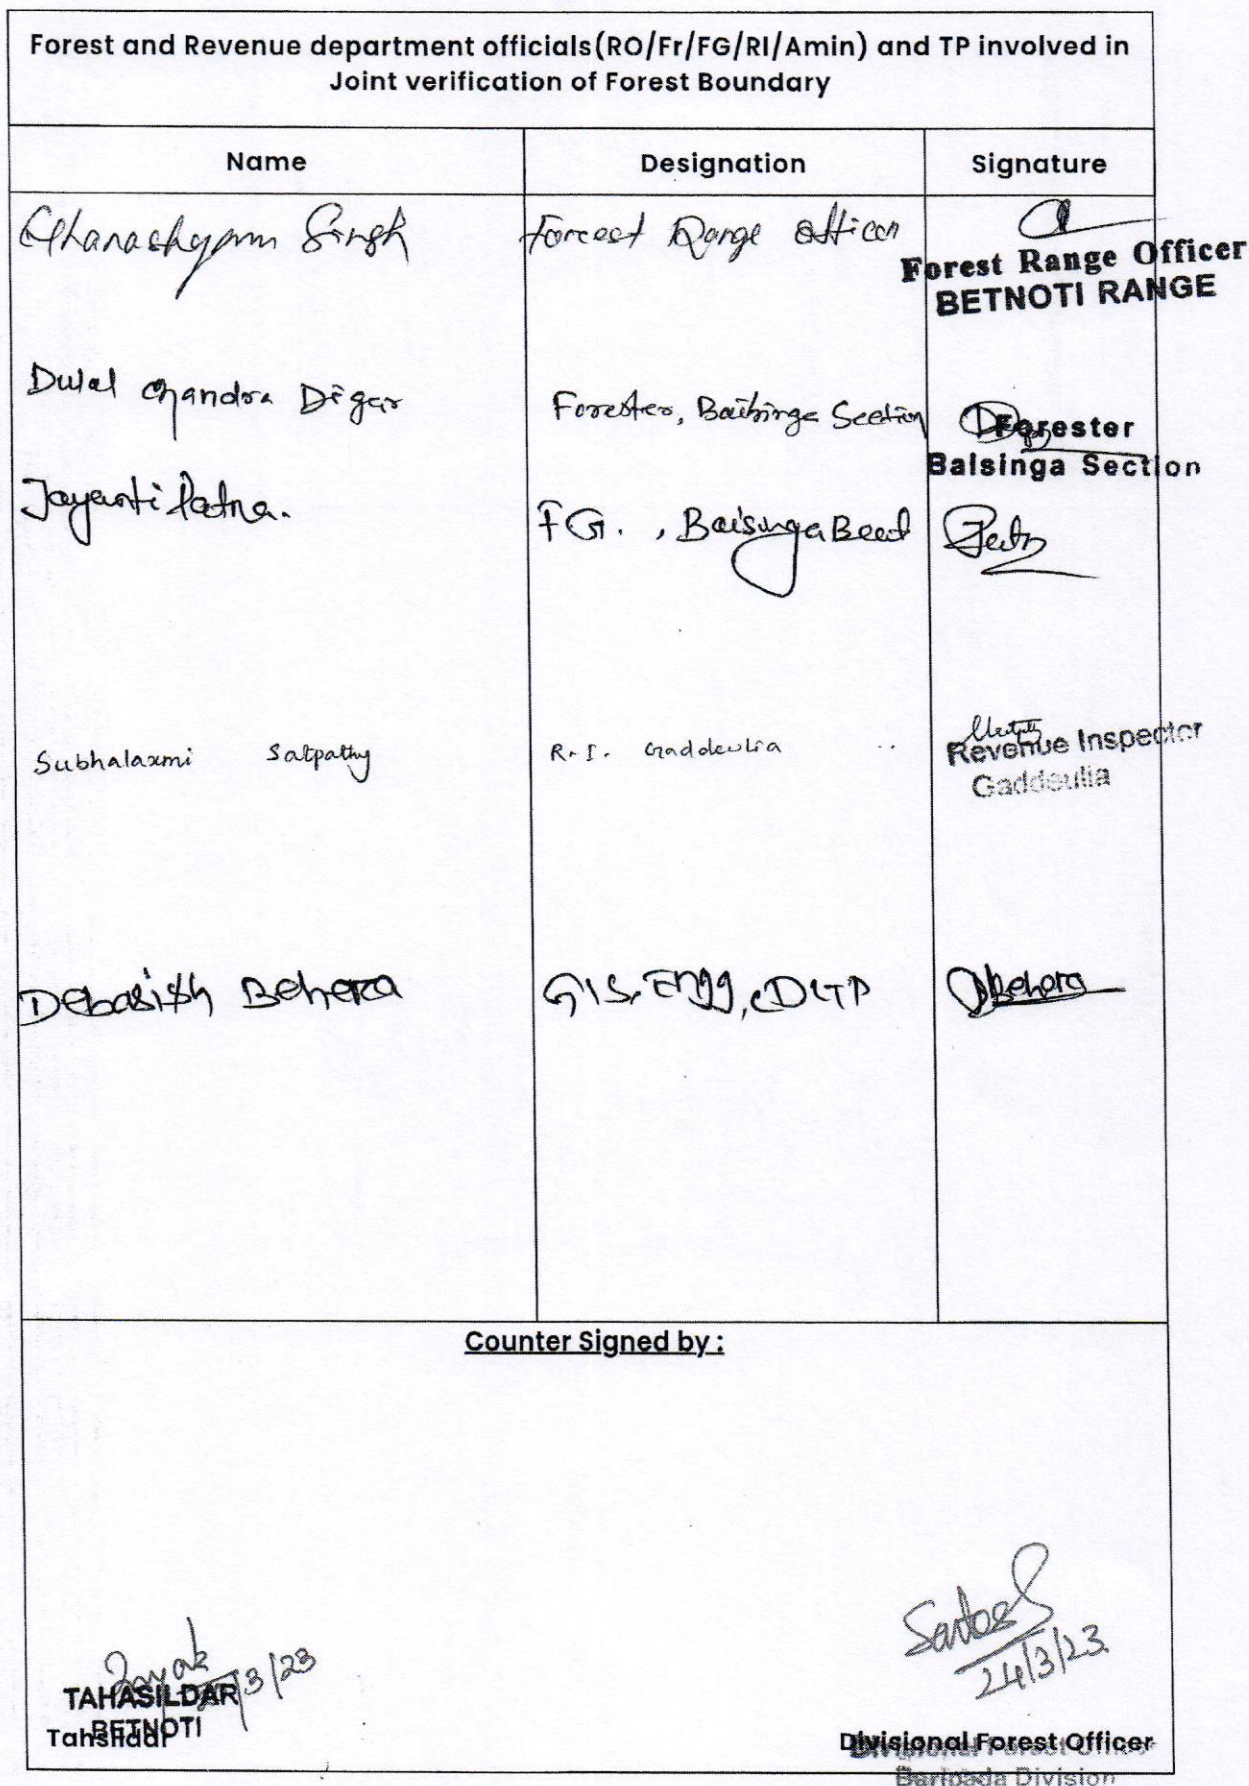 Forest and Revenue department officials(RO/Fr/FG/RI/Amin) and TP involved in
Joint verification of Forest Boundary
Name Designation Signature
Ghanashyam Singh Forest Range Officer
Forest Range Officer
BETNOTI RANGE
Dulal Chandra Digar Forester, Baisinga Section
Forester
Baisinga Section
Jayanti Patra. FG. , Baisinga Beat
Subhalaxmi Satpathy R.I. Gaddeulia
Revenue Inspector
Gaddeulia
Debasish Behera GIS, Engg, DLTP DBehera
Counter Signed by :
Santosh
24/3/23
/3/23
TAHASILDAR
BETNOTI
Tahsildar
Divisional Forest Officer
Divisional Forest Officer
Baripada Division